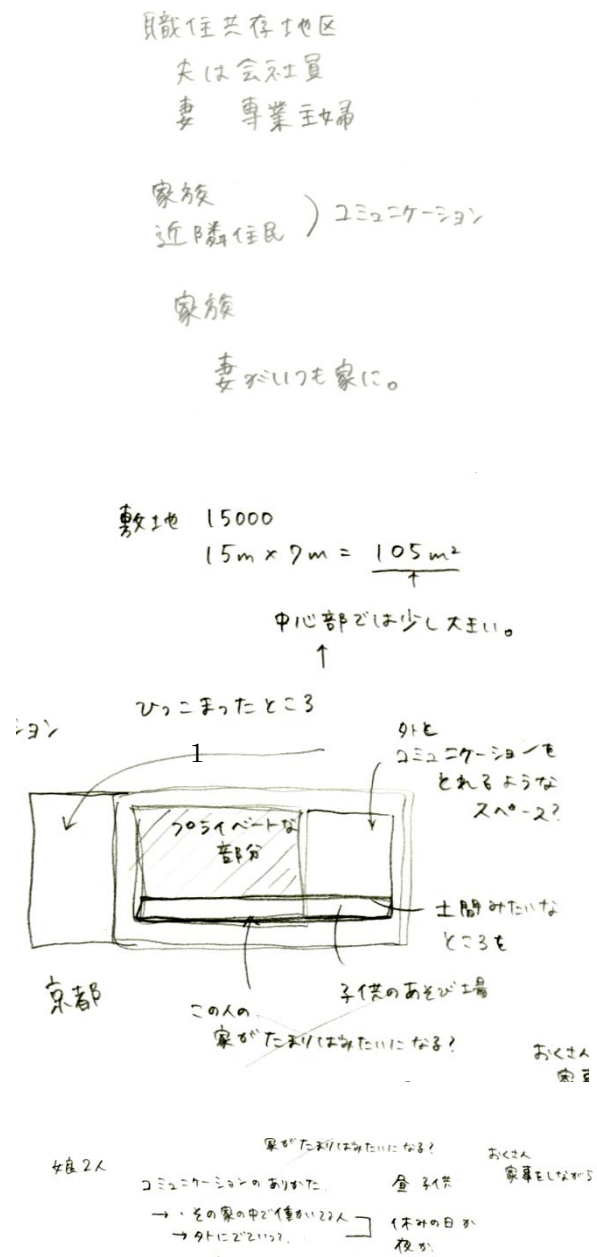 職住共存地区
夫は会社員
妻 専業主婦
家族
近隣住民 ) コミュニケーション
家族
妻がいつも家に。
敷地 15000
15m × 7m = 105m²
↑
中心部では少し大きい。
↑
ひっこまったところ
ション
1
外と
コミュニケーションを
とれるような
スペース?
プライベートな
部分
土間みたいな
ところを
京都
子供のあそび場
この人の
家がたまりばみたいになる?
おくさん
家事
家がたまりばみたいになる?
娘2人
おくさん
家事をしながら
コミュニケーションのありかた.
昼 子供
→ ・その家の中で
→ 外にでていって.
休みの日か
夜か.